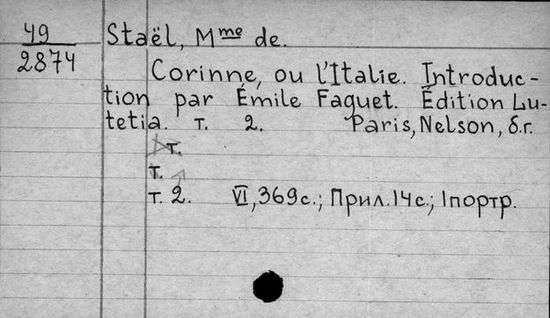 49
2874
Staël, Mme de.
Corinne, ou l'Italie. Introduc-
tion par Émile Faguet. Édition Lu-
tetia. т. 2. Paris, Nelson, б.г.
т.
т.
т. 2. VI, 369с.; Прил. 14с.; 1портр.